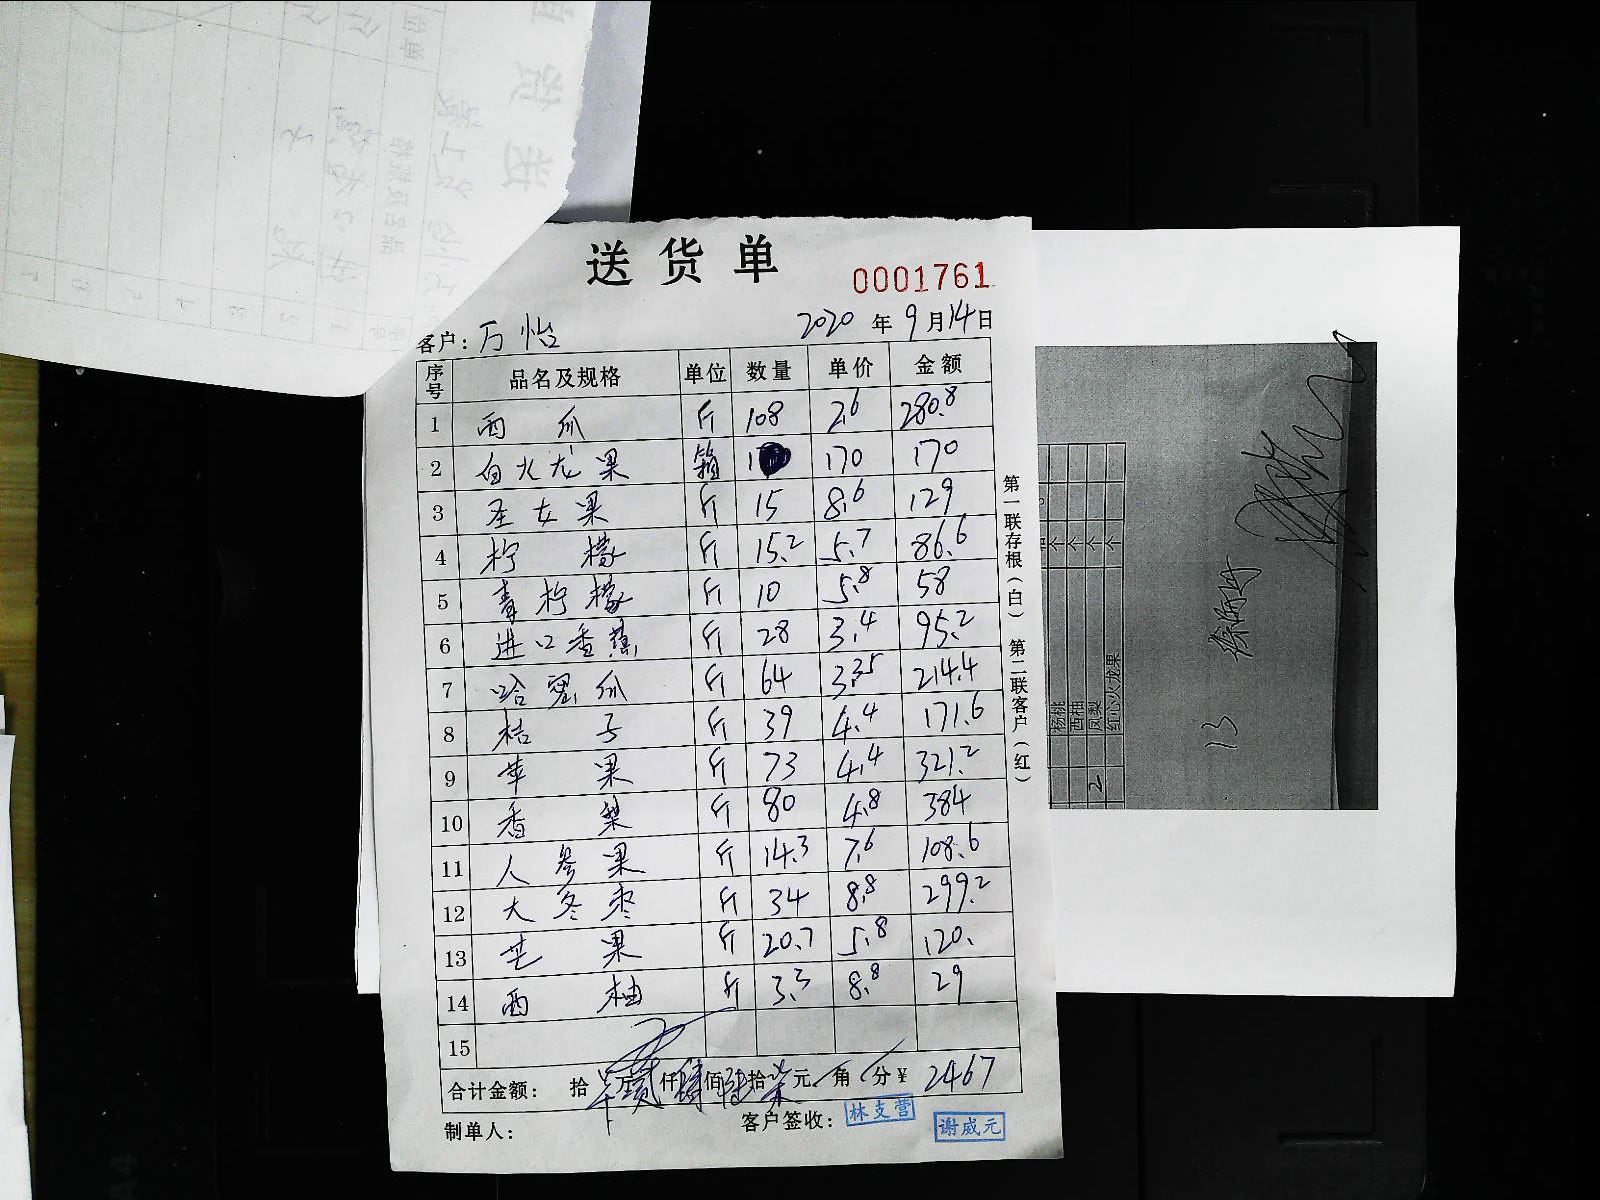 送货单
0001761
客户：万怡 2020年9月14日
序号 品名及规格 单位 数量 单价 金额
1 西瓜 斤 108 2.6 280.8
2 白火龙果 箱 1 170 170
3 圣女果 斤 15 8.6 129
4 柠檬 斤 15.2 5.7 86.6
5 青柠檬 斤 10 5.8 58
6 进口香蕉 斤 28 3.4 95.2
7 哈密瓜 斤 64 3.35 214.4
8 桔子 斤 39 4.4 171.6
9 苹果 斤 73 4.4 321.2
10 香梨 斤 80 4.8 384
11 人参果 斤 14.3 7.6 108.6
12 大冬枣 斤 34 8.8 299.2
13 芒果 斤 20.7 5.8 120.
14 西柚 斤 3.3 8.8 29
15
合计金额： 拾 万贰仟肆佰陆拾柒元 角 分 ¥ 2467
制单人： 客户签收： 林支营 谢威元
第一联存根（白） 第二联客户（红）
杨桃
西柚 个
凤梨 个 2
红心火龙果 个
13